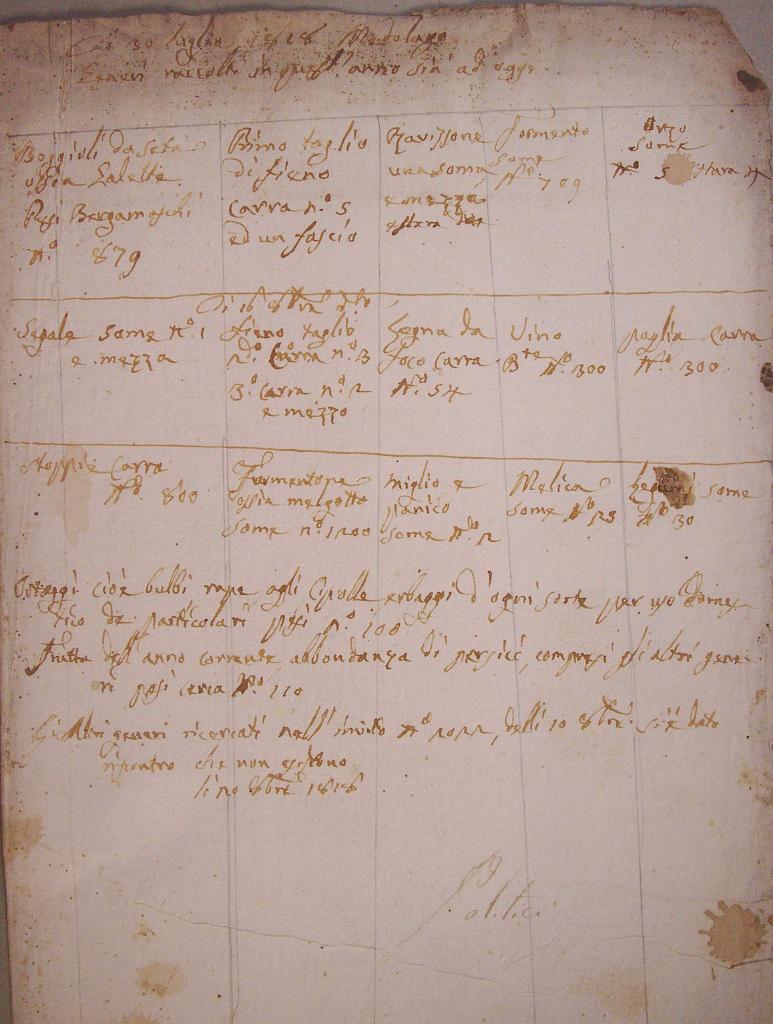 30 luglio 1818 Medolago
Generi raccolti in quest'anno sin ad oggi
Bozzioli da seta
ossia Galette
Pesi Bergamaschi
N.º 879
Primo taglio
di fieno
Carra n.º 5
ed un fascio
Ravizzone
una soma
e mezza
e stara
formento
some
N.º 709
Orzo
some
N.º 5 stara 4
Di 16 8bre dto
Segale some n.º 1
e mezza
fieno taglio
2dº Carra n.º 3
3.º Carra n.º 2
e mezzo
Legna da
foco Carra
N.º 54
Vino
Bte N.º 300
paglia Carra
N.º 300
stoppie Carra
N.º 800
Formentone
ossia melgotto
some n.º 1200
miglio e
panico
some N.º 2
Melica
some N.º 25
Legumi some
N.º 30
Ortaggi cioè bulbi rape agli Cipolle erbaggi d'ogni sorte per uso domes
tico de particolari pesi n.º 100
Frutta dell'anno corrente abbondanza di persici, compresi gli altri gene
ri pesi cerca N.º 110
Gli altri generi ricercati nell'invito N.º delli 10 8bre si è dato
riscontro che non esistono
li 8bre 1818
Politici